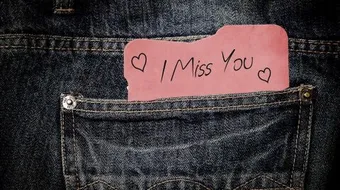 I Miss You